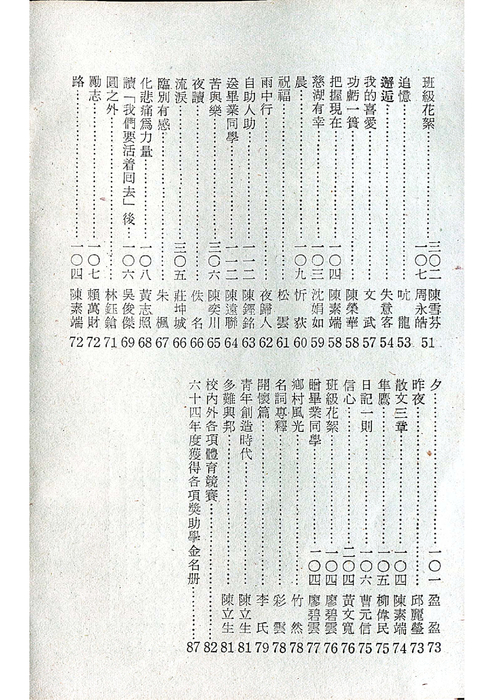 班級花絮……三〇二 陳雪芬 51
追憶……一〇七 周永皓 52
邂逅……吭龍 53
我的喜愛……失意客 54
功虧一簣……文武 57
把握現在……陳榮華 58
慈湖有幸……一〇四 陳素端 58
晨……一〇三 沈娟如 59
祝福……一〇九 忻荻 60
雨中行……松雲 61
自助人助……夜歸人 62
送畢業同學……一一二 陳鏗銘 63
苦與樂……一一二 陳遠聯 64
夜讀……三〇六 陳奕川 65
流淚……佚名 66
臨別有感……三〇五 莊坤城 66
化悲痛為力量……朱楓 67
讀「我們要活着回去」後……一〇八 黃志照 68
圓之外……一〇六 吳俊傑 69
勵志……林鈺鎗 71
路……一〇七 賴萬財 72
一〇四 陳素端 72
夕……一〇一 盈盈 73
昨夜……邱麗鎣 73
散文三章……一〇四 陳素端 74
隼鷹……一〇五 柳偉民 75
日記一則……一〇六 曹元信 75
信心……二〇四 黃文寬 76
班級花絮……一〇四 廖碧雲 76
贈畢業同學……一〇四 廖碧雲 77
鄉村風光……竹然 78
名詞專釋……彩雲 78
開懷篇……李氏 79
青年創造時代……陳立生 81
多難興邦……陳立生 81
校內外各項體育競賽……82
六十四年度獲得各項獎助學金名冊……87